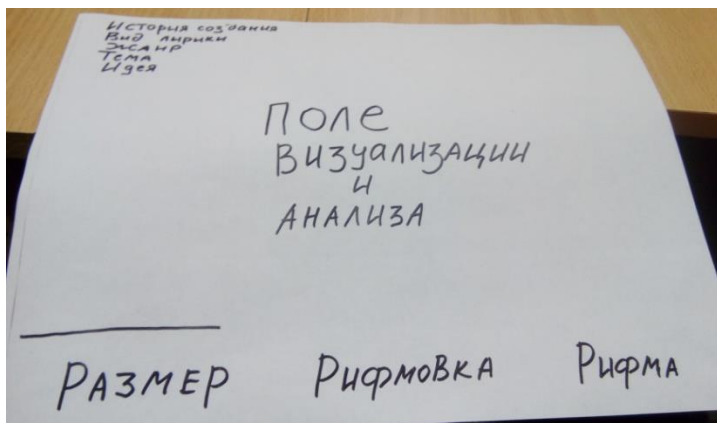 История создания
Вид лирики
Жанр
Тема
Идея
Поле
визуализации
и
анализа
Размер
Рифмовка
Рифма